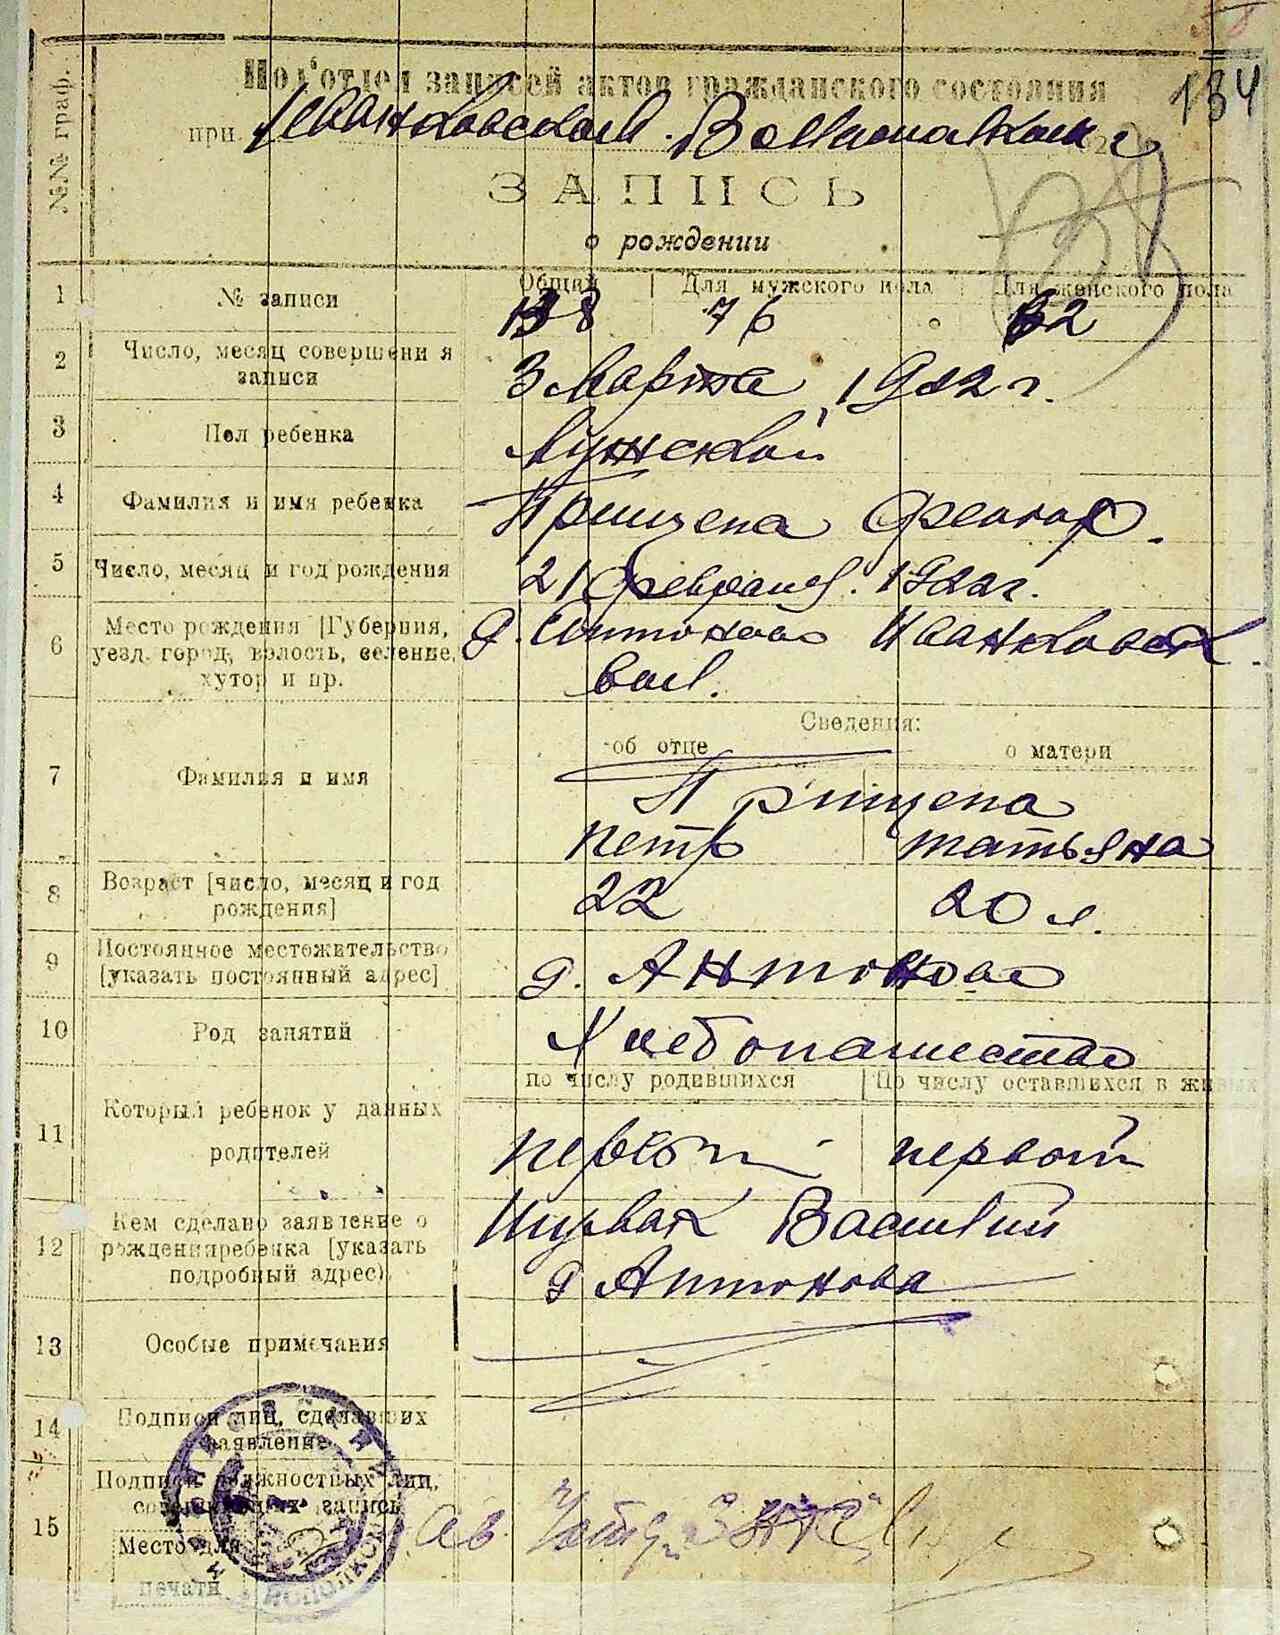 134
№№ граф.
Под'отдел записей актов гражданского состояния
при Иванковском Волисполкоме
ЗАПИСЬ
о рождении
1 № записи
Общий Для мужского пола Для женского пола
138 76 62
2 Число, месяц совершения записи
3 Марта 1922 г.
3 Пол ребенка
Мужской
4 Фамилия и имя ребенка
Прищепа Феодор.
5 Число, месяц и год рождения
21 февраля. 1922 г.
6 Место рождения [Губерния,
уезд, город, волость, селение,
хутор и пр.
д. Антонова Иванковск.
вол.
Сведения:
об отце о матери
7 Фамилия и имя
Прищепа
петр татьяна
8 Возраст [число, месяц и год
рождения]
22 20 л.
9 Постоянное местожительство
[указать постоянный адрес]
д. Антонова
10 Род занятий
Хлебопашество
по числу родившихся По числу оставшихся в живых
11 Который ребенок у данных
родителей
первый первый
12 Кем сделано заявление о
рождении ребенка [указать
подробный адрес)
Василий
д Антонова
13 Особые примечания
14 Подписи лиц, сделавших
заявление
15 Подписи должностных лиц,
совершающих запись
Место для
печати